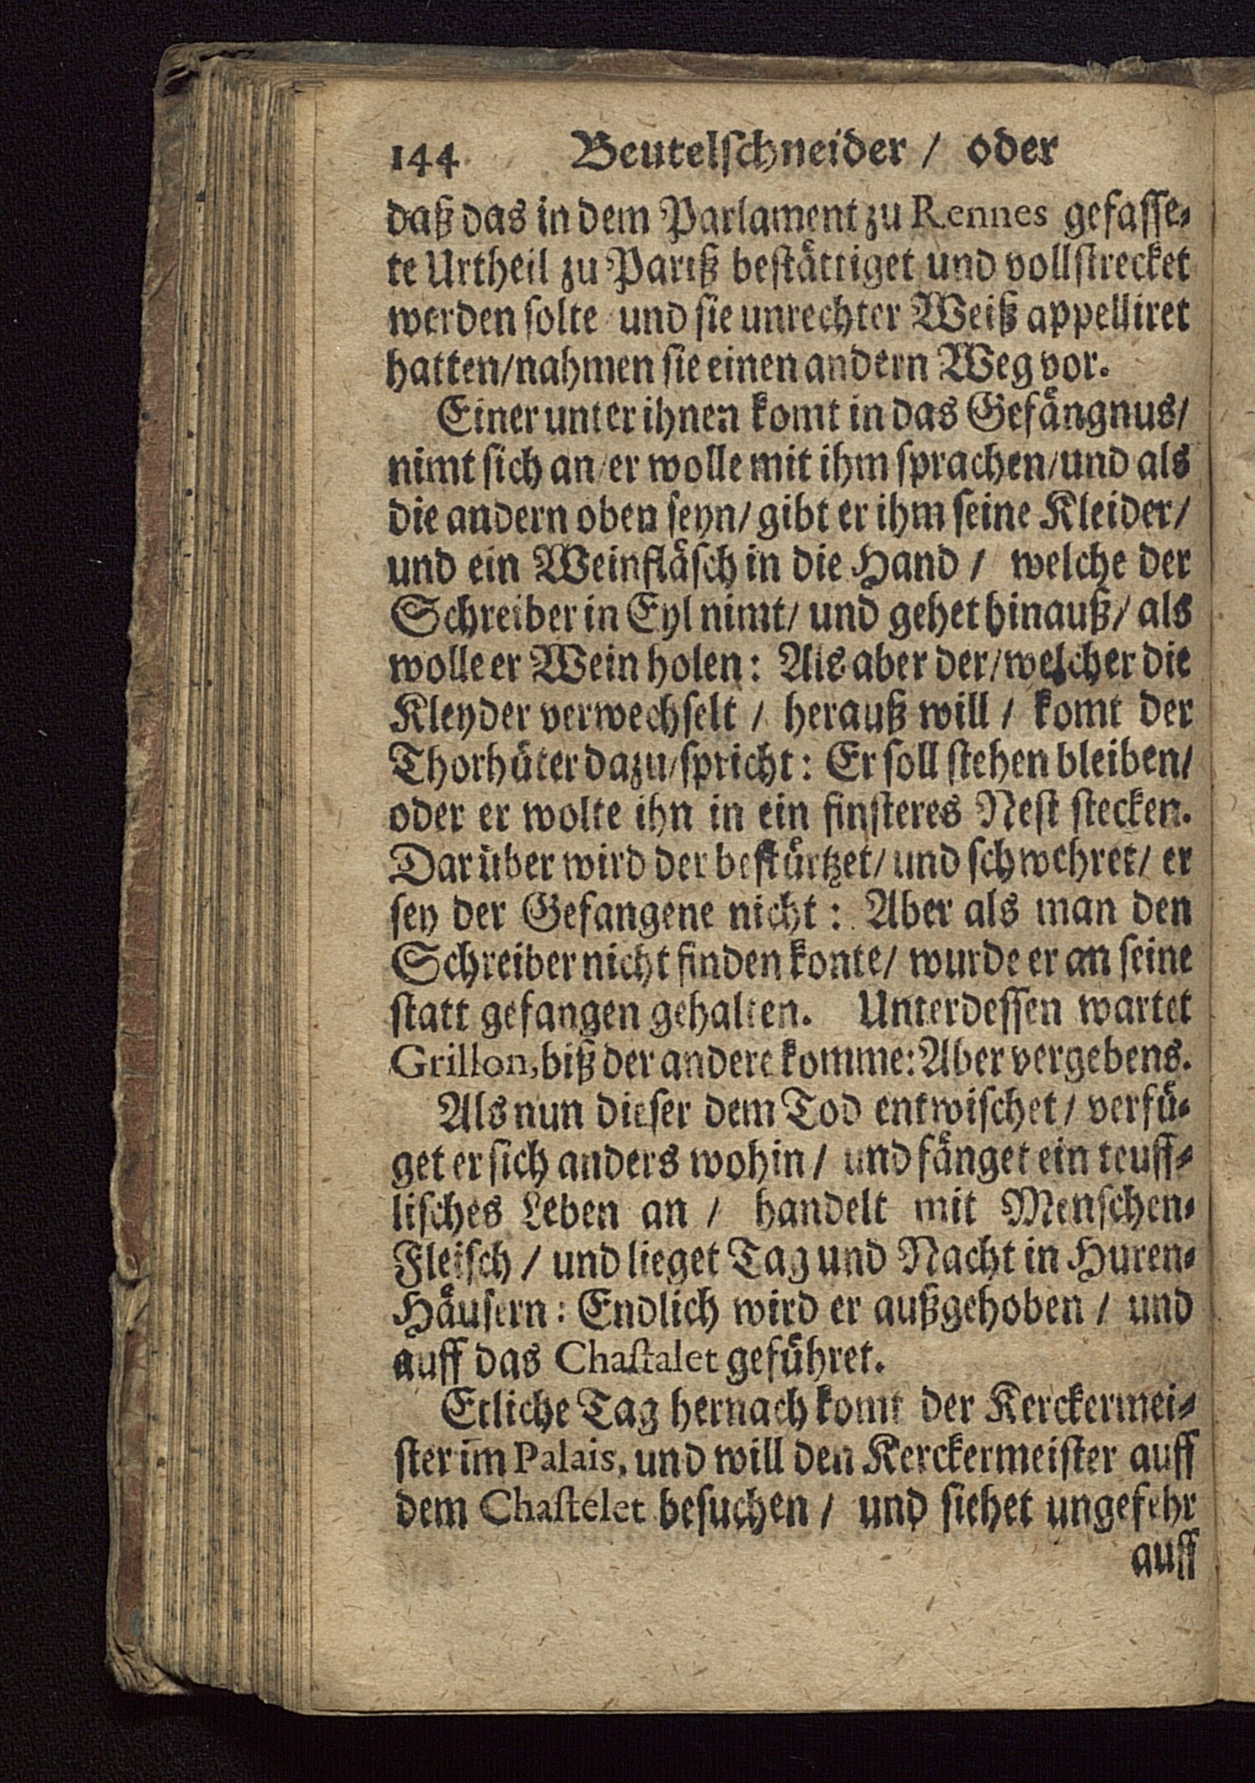 144 Beutelschneider / oder
daß das in dem Parlament zu Rennes gefasse-
te Urtheil zu Pariß bestättiget und vollstrecket
werden solte und sie unrechter Weiß appelliret
hatten/nahmen sie einen andern Weg vor.
Einer unter ihnen komt in das Gefängnus/
nimt sich an/er wolle mit ihm sprachen/und als
die andern oben seyn/ gibt er ihm seine Kleider/
und ein Weinfläsch in die Hand / welche der
Schreiber in Eyl nimt/ und gehet hinauß/ als
wolle er Wein holen: Als aber der/welcher die
Kleyder verwechselt / herauß will / komt der
Thorhüter dazu/spricht: Er soll stehen bleiben/
oder er wolte ihn in ein finsteres Nest stecken.
Darüber wird der bestürtzet/ und schwehret/ er
sey der Gefangene nicht: Aber als man den
Schreiber nicht finden konte/ wurde er an seine
statt gefangen gehalten. Unterdessen wartet
Grillon, biß der andere komme: Aber vergebens.
Als nun dieser dem Tod entwischet / verfü-
get er sich anders wohin / und fänget ein teuff-
lisches Leben an / handelt mit Menschen-
Fleisch / und lieget Tag und Nacht in Huren-
Häusern: Endlich wird er außgehoben / und
auff das Chastalet geführet.
Etliche Tag hernach komt der Kerckermei-
ster im Palais, und will den Kerckermeister auff
dem Chastelet besuchen / und siehet ungefehr
auff